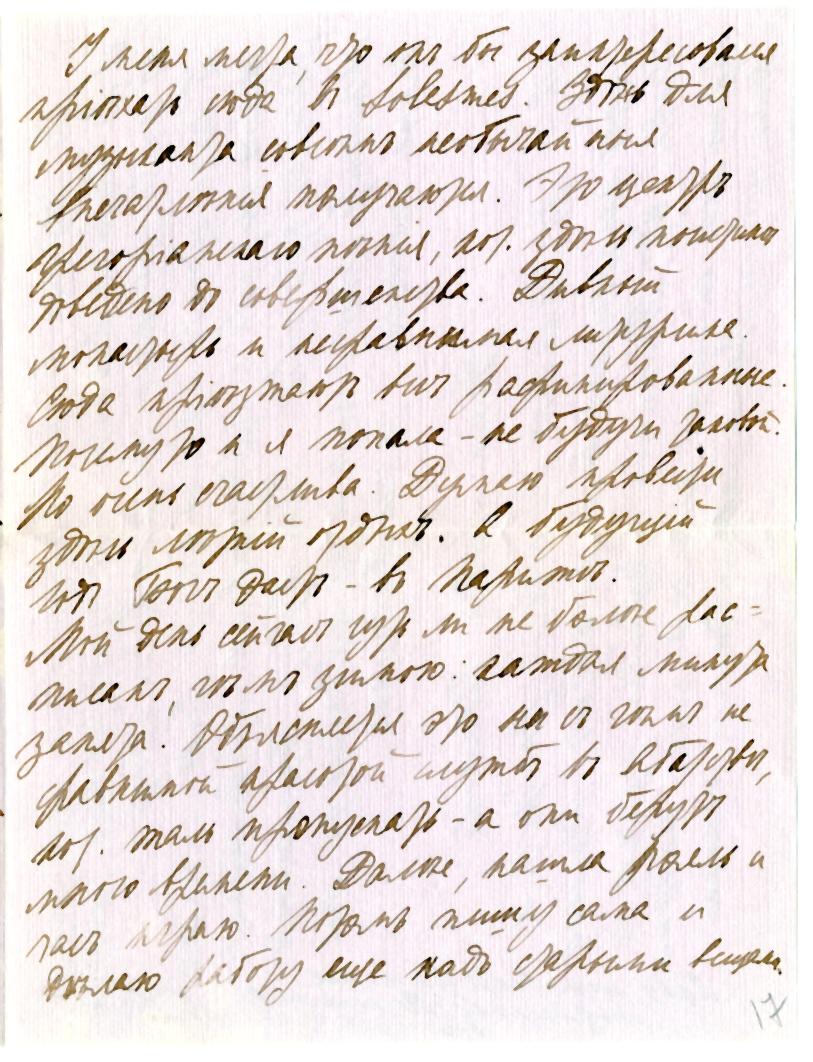 У меня мечта, что он бы заинтересовался
пріѣхать сюда въ Solesmes. Здѣсь для
музыканта совсѣмъ необычайныя
впечатлѣнія получаются. Это центръ
грегоріанскаго пѣнія, кот. здѣсь
доведено до совершенства. Дивный
монастырь и несравнимая литургика.
Сюда пріѣзжаютъ всѣ рафинированные.
Посему то и я попала – не будучи таковой.
Но очень счастлива. Думаю провести
здѣсь лѣтній отдыхъ. А будущій
годъ Богъ дастъ – въ Парижѣ.
Мой день сейчасъ чуть ли не болѣе рас=
писанъ, чѣмъ зимою: каждая минута
занята. Объясняется это не
сравнимой красотой службъ въ Абатствѣ,
кот. жаль пропускать – а они берутъ
много времени. Далѣе, нашла рояль и
часъ играю. Потомъ пишу сама и
дѣлаю работу еще надъ старыми вещами.
17